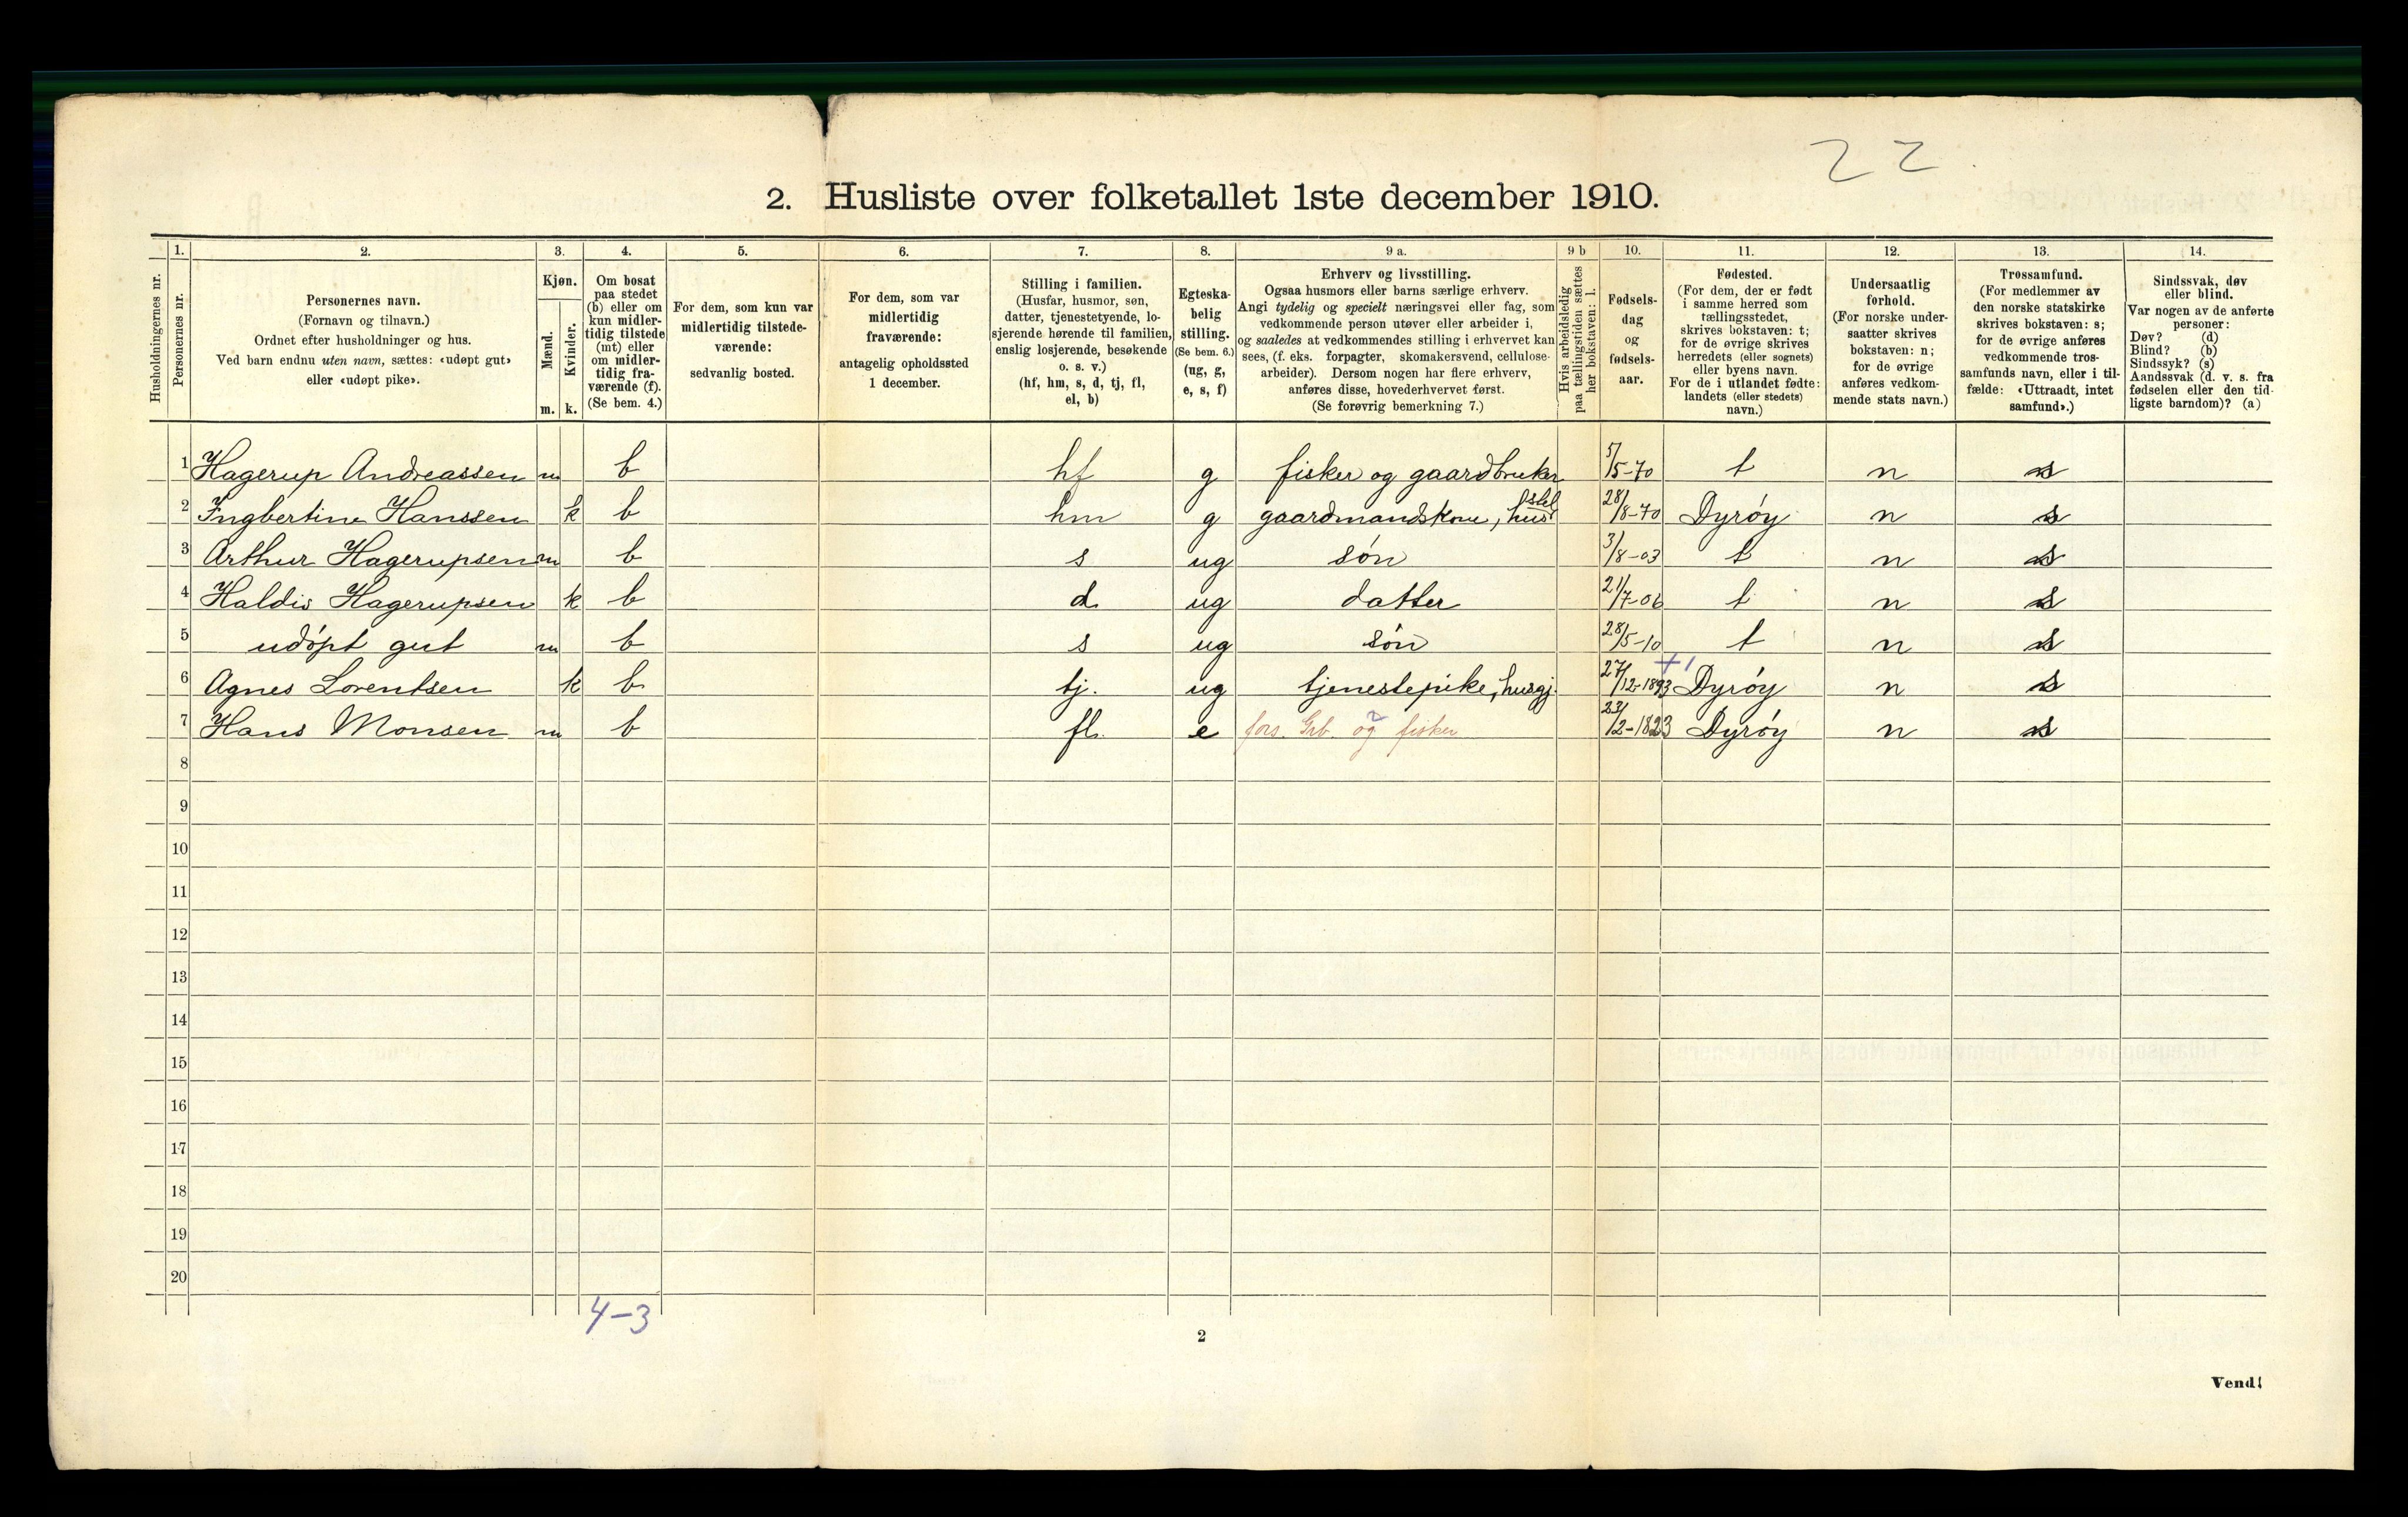 22
2. Husliste over folketallet 1ste december 1910.
Husholdningernes nr.
1.
Personernes nr.
2.
Personernes navn.
(Fornavn og tilnavn.)
Ordnet efter husholdninger og hus.
Ved barn endnu uten navn, sættes: «udøpt gut»
eller «udøpt pike».
3.
Kjøn.
Mænd.
Kvinder.
m. k.
4.
Om bosat
paa stedet
(b) eller om
kun midler-
tidig tilstede
(mt) eller
om midler-
tidig fra-
værende (f).
(Se bem. 4.)
5.
For dem, som kun var
midlertidig tilstede-
værende:
sedvanlig bosted.
6.
For dem, som var
midlertidig
fraværende:
antagelig opholdssted
1 december.
7.
Stilling i familien.
(Husfar, husmor, søn,
datter, tjenestetyende, lo-
sjerende hørende til familien,
enslig losjerende, besøkende
o. s. v.)
(hf, hm, s, d, tj, fl,
el, b)
8.
Egteska-
belig
stilling.
(Se bem. 6.)
(ug, g,
e, s, f)
9 a.
Erhverv og livsstilling.
Ogsaa husmors eller barns særlige erhverv.
Angi tydelig og specielt næringsvei eller fag, som
vedkommende person utøver eller arbeider i,
og saaledes at vedkommendes stilling i erhvervet kan
sees, (f. eks. forpagter, skomakersvend, cellulose-
arbeider). Dersom nogen har flere erhverv,
anføres disse, hovederhvervet først.
(Se forøvrig bemerkning 7.)
9 b
Hvis arbeidsledig
paa tællingstiden sættes
her bokstaven: l.
10.
Fødsels-
dag
og
fødsels-
aar.
11.
Fødested.
(For dem, der er født
i samme herred som
tællingsstedet,
skrives bokstaven: t;
for de øvrige skrives
herredets (eller sognets)
eller byens navn.
For de i utlandet fødte:
landets (eller stedets)
navn.)
12.
Undersaatlig
forhold.
(For norske under-
saatter skrives
bokstaven: n;
for de øvrige
anføres vedkom-
mende stats navn.)
13.
Trossamfund.
(For medlemmer av
den norske statskirke
skrives bokstaven: s;
for de øvrige anføres
vedkommende tros-
samfunds navn, eller i til-
fælde: «Uttraadt, intet
samfund».)
14.
Sindssvak, døv
eller blind.
Var nogen av de anførte
personer:
Døv? (d)
Blind? (b)
Sindssyk? (s)
Aandssvak (d. v. s. fra
fødselen eller den tid-
ligste barndom)? (a)
1 Hagerup Andreassen m b hf g fisker og gaardbruker 5/5-70 t n s
2 Ingbertine Hanssen k b hm g gaardmandskone, husstel 28/8-70 Dyrøy n s
3 Arthur Hagerupsen m b s ug søn 3/8-03 t n s
4 Haldis Hagerupsen k b d. ug datter 21/7-06 t n s
5 udøpt gut m b s ug søn 28/5-10 t n s
6 Agnes Lorentsen k b tj. ug tjenestepike, husgj. 27/12-1893 Dyrøy n s
7 Hans Monsen m b fl. e fors. Grb. og fisker 23/2-1823 Dyrøy n s
8
9
10
11
12
13
14
15
16
17
18
19
20
4-3
2
Vend!